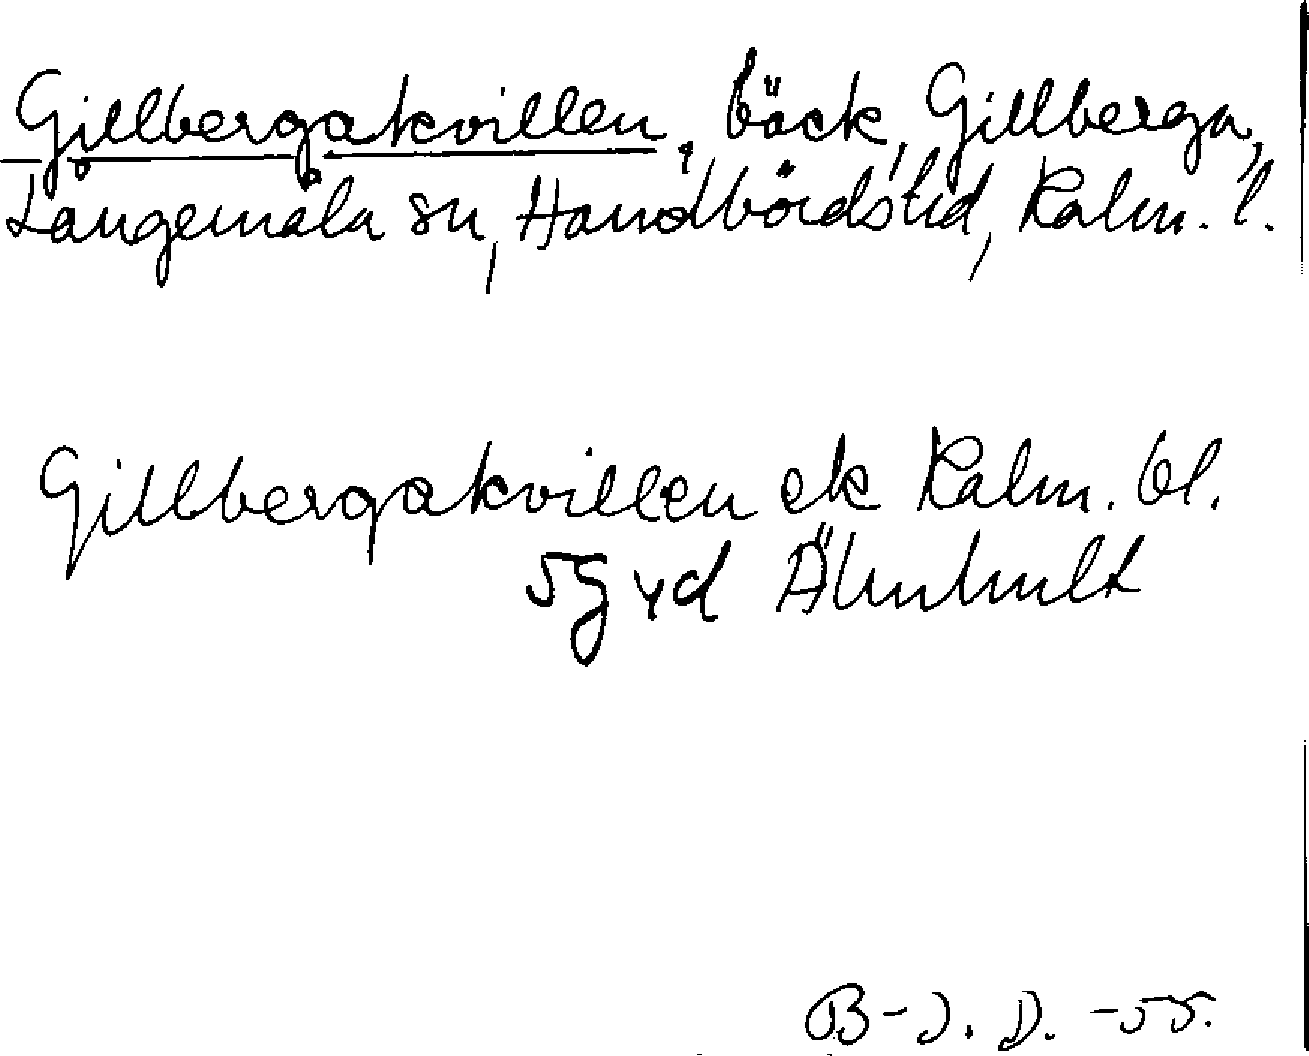 Gillbergakvillen, bäck, Gillberga,
Långemåla sn, Handbörds hd, Kalm. l.
Gillbergakvillen ek Kalm. bl.
5g vd Älmhult
B-J. D. -55.